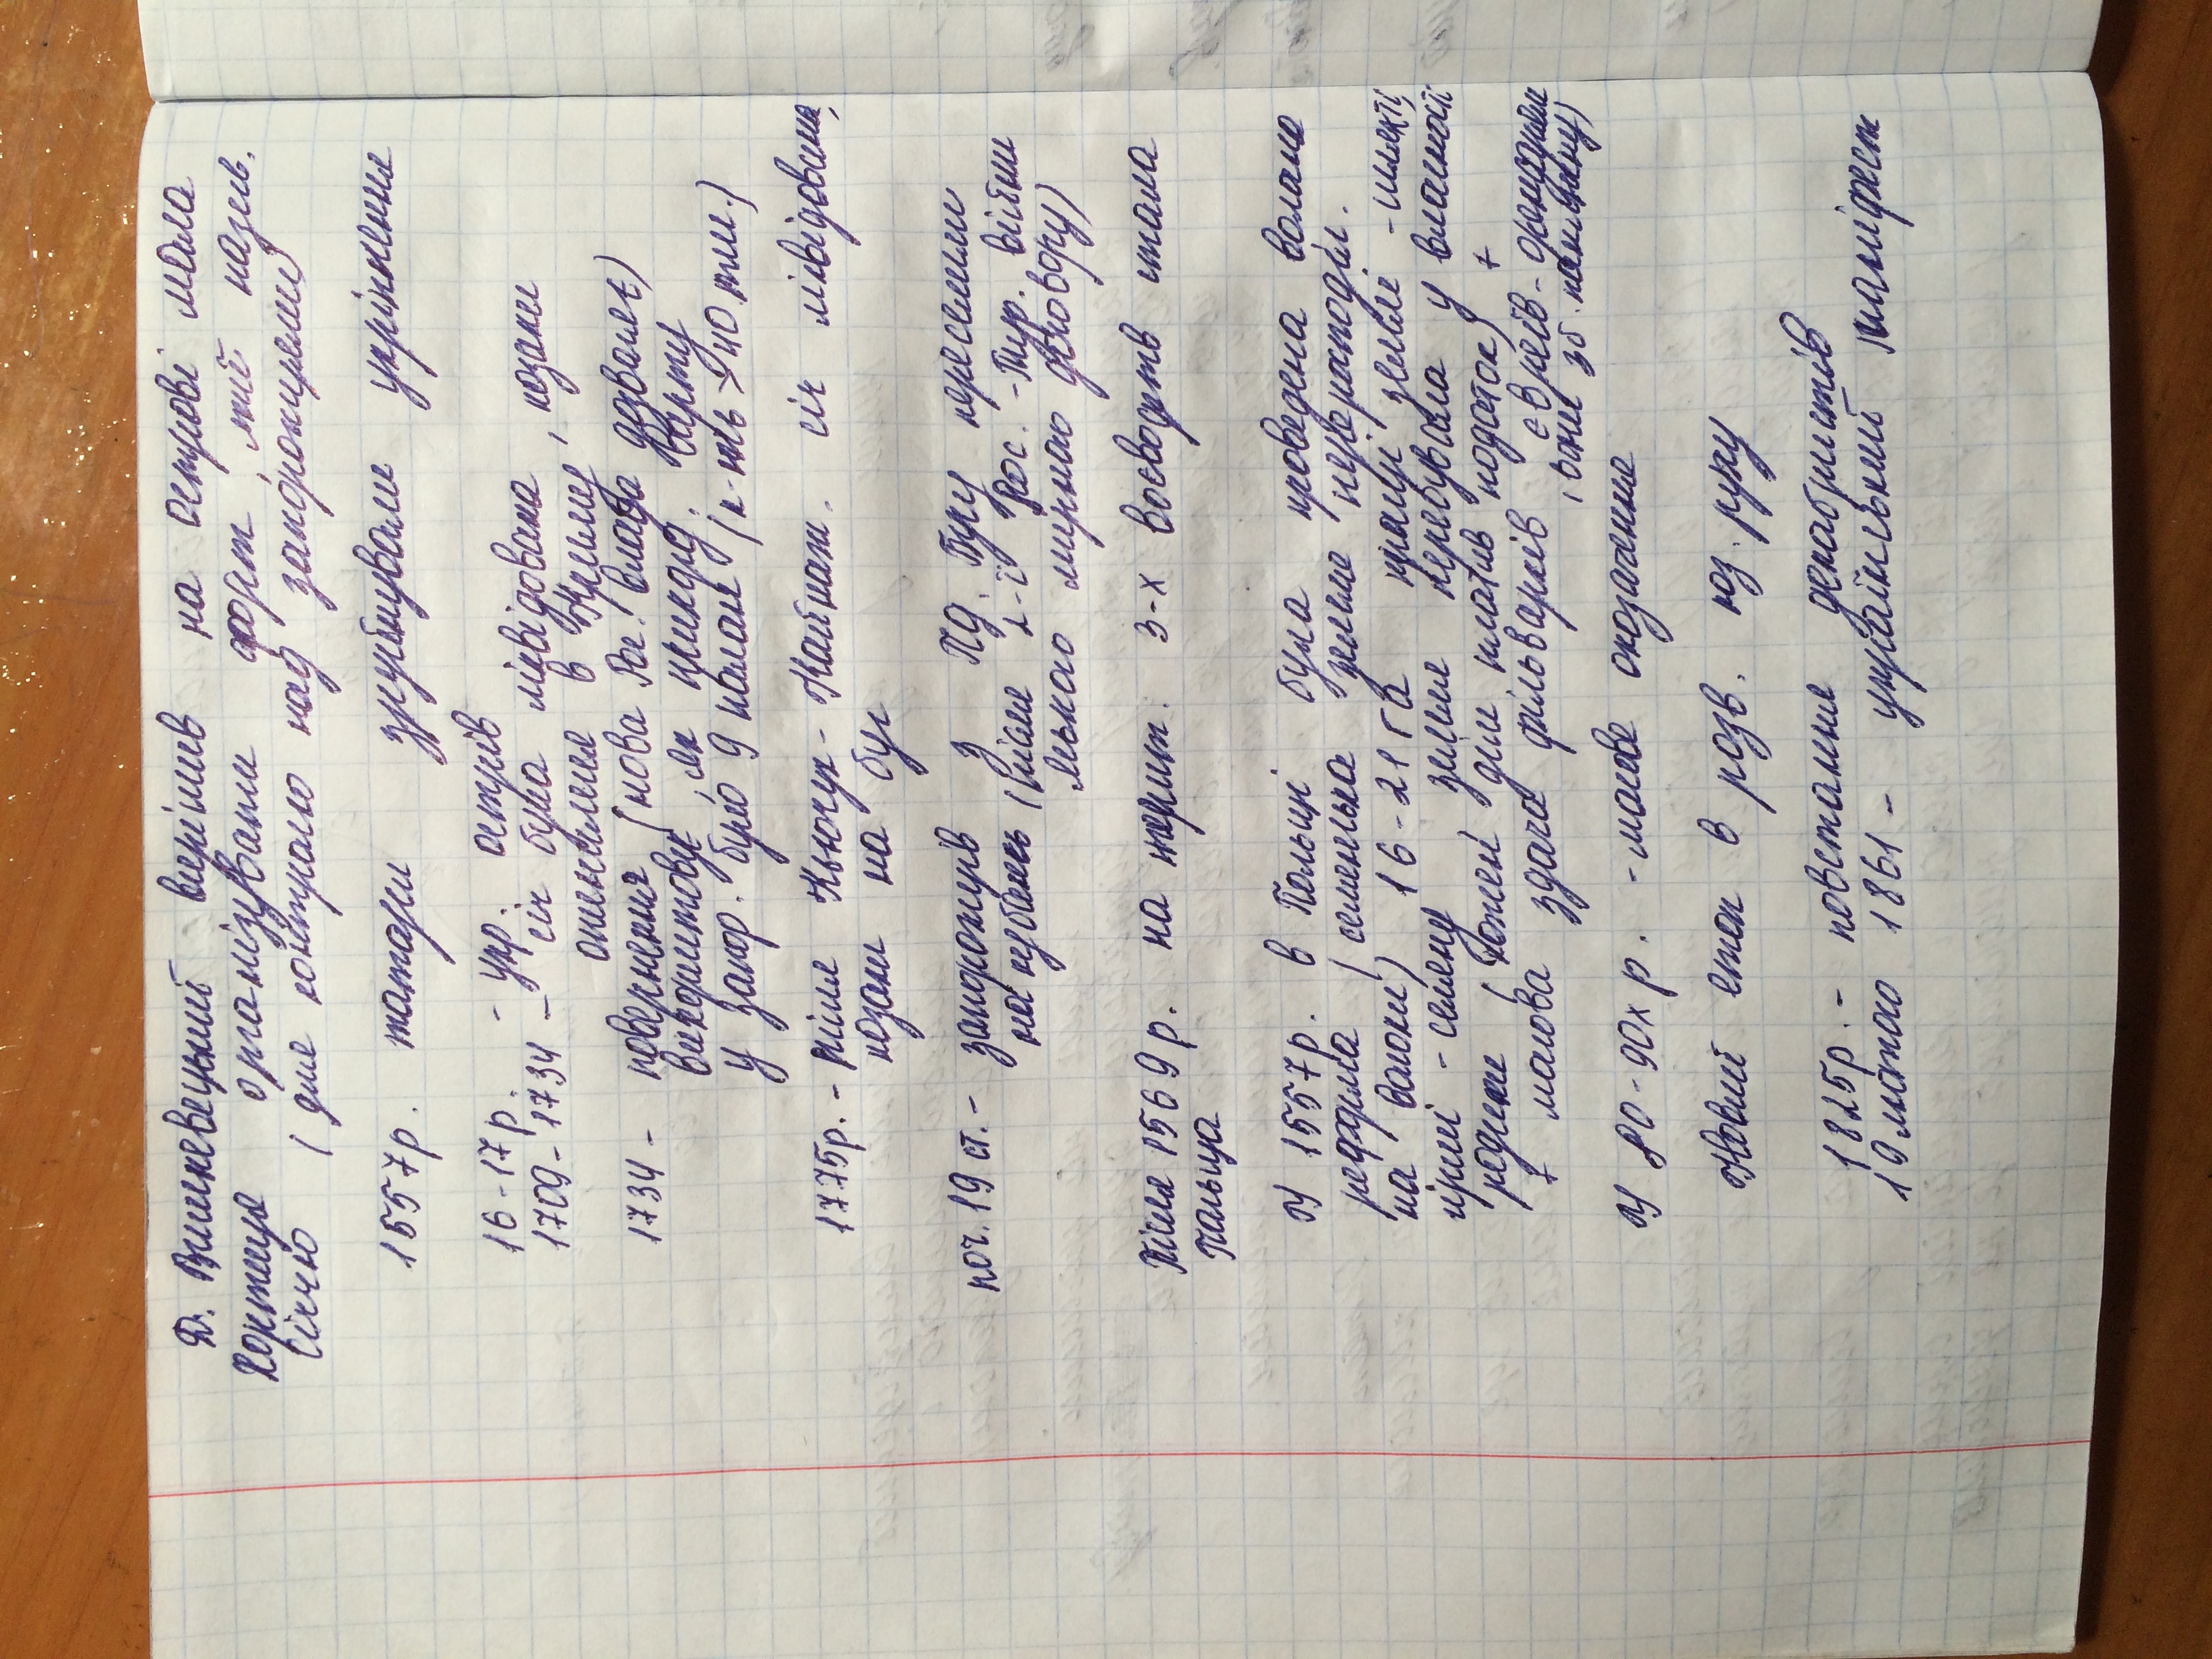 Д. Вишневецький вирішив на острові мала
Хортиця організувати форт, який назив.
Січчю (для контролю над запорожцями)
1557р. татари зруйнували укріплення
16-17р. - укр. острів
1709-1734 - січ була ліквідована, козаки
опинилися в Криму
1734 - повернення (нова Рос. влада дозволяє)
використовує, як прикорд. варту
у запор. було 9 палан (к-ть > 40 тис.)
1775р. - після Кючук-Кайнаж. січ ліквідована,
козаки на буг
поч. 19 ст. - запорожців з Пд. Бугу переселили
на кубань (після 2-ї Рос. -Тур. війни
мирного договору)
Після 1569р. на терит. 3-х воєводств стала
Польща
У 1557р. в Польщі була проведена
реформа (селянська земля перерозподіл.
на волоки) 16-21 га кращі землі - шляхті,
гірші - селяну, земля перебувала у власності
родини (кожен дім платив податок) +
+ масова здача фільварків євреїв-орендарям
(вони зб. панщину)
У 80-90х р. - масове окозачення
Новий етап в розв. коз. руху
1825р. - повстання декабристів
19 лютого 1861 - український маніфест